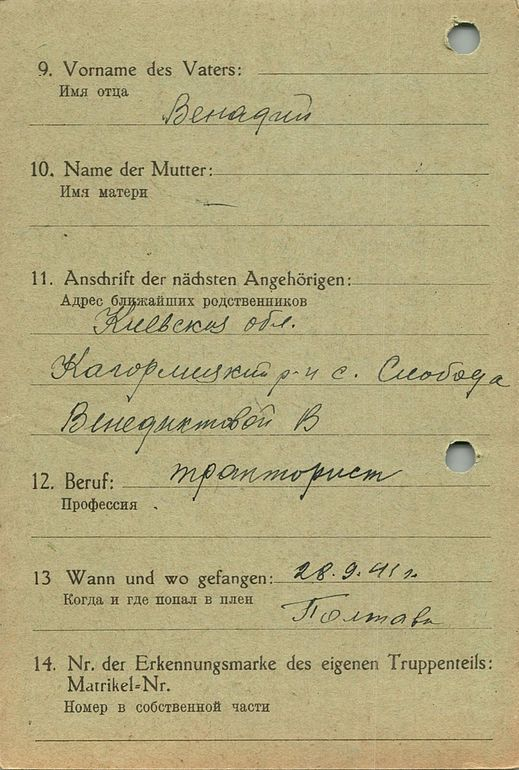 9. Vorname des Vaters:
Имя отца
Венадий
10. Name der Mutter:
Имя матери
—
11. Anschrift der nächsten Angehörigen:
Адрес ближайших родственников
Киевская обл.
Кагорлицкий р-н с. Слобода
Венедиктовой В
12. Beruf: тракторист
Профессия
13 Wann und wo gefangen: 28.9.41 г.
Когда и где попал в плен
Полтава
14. Nr. der Erkennungsmarke des eigenen Truppenteils:
Matrikel=Nr.
Номер в собственной части